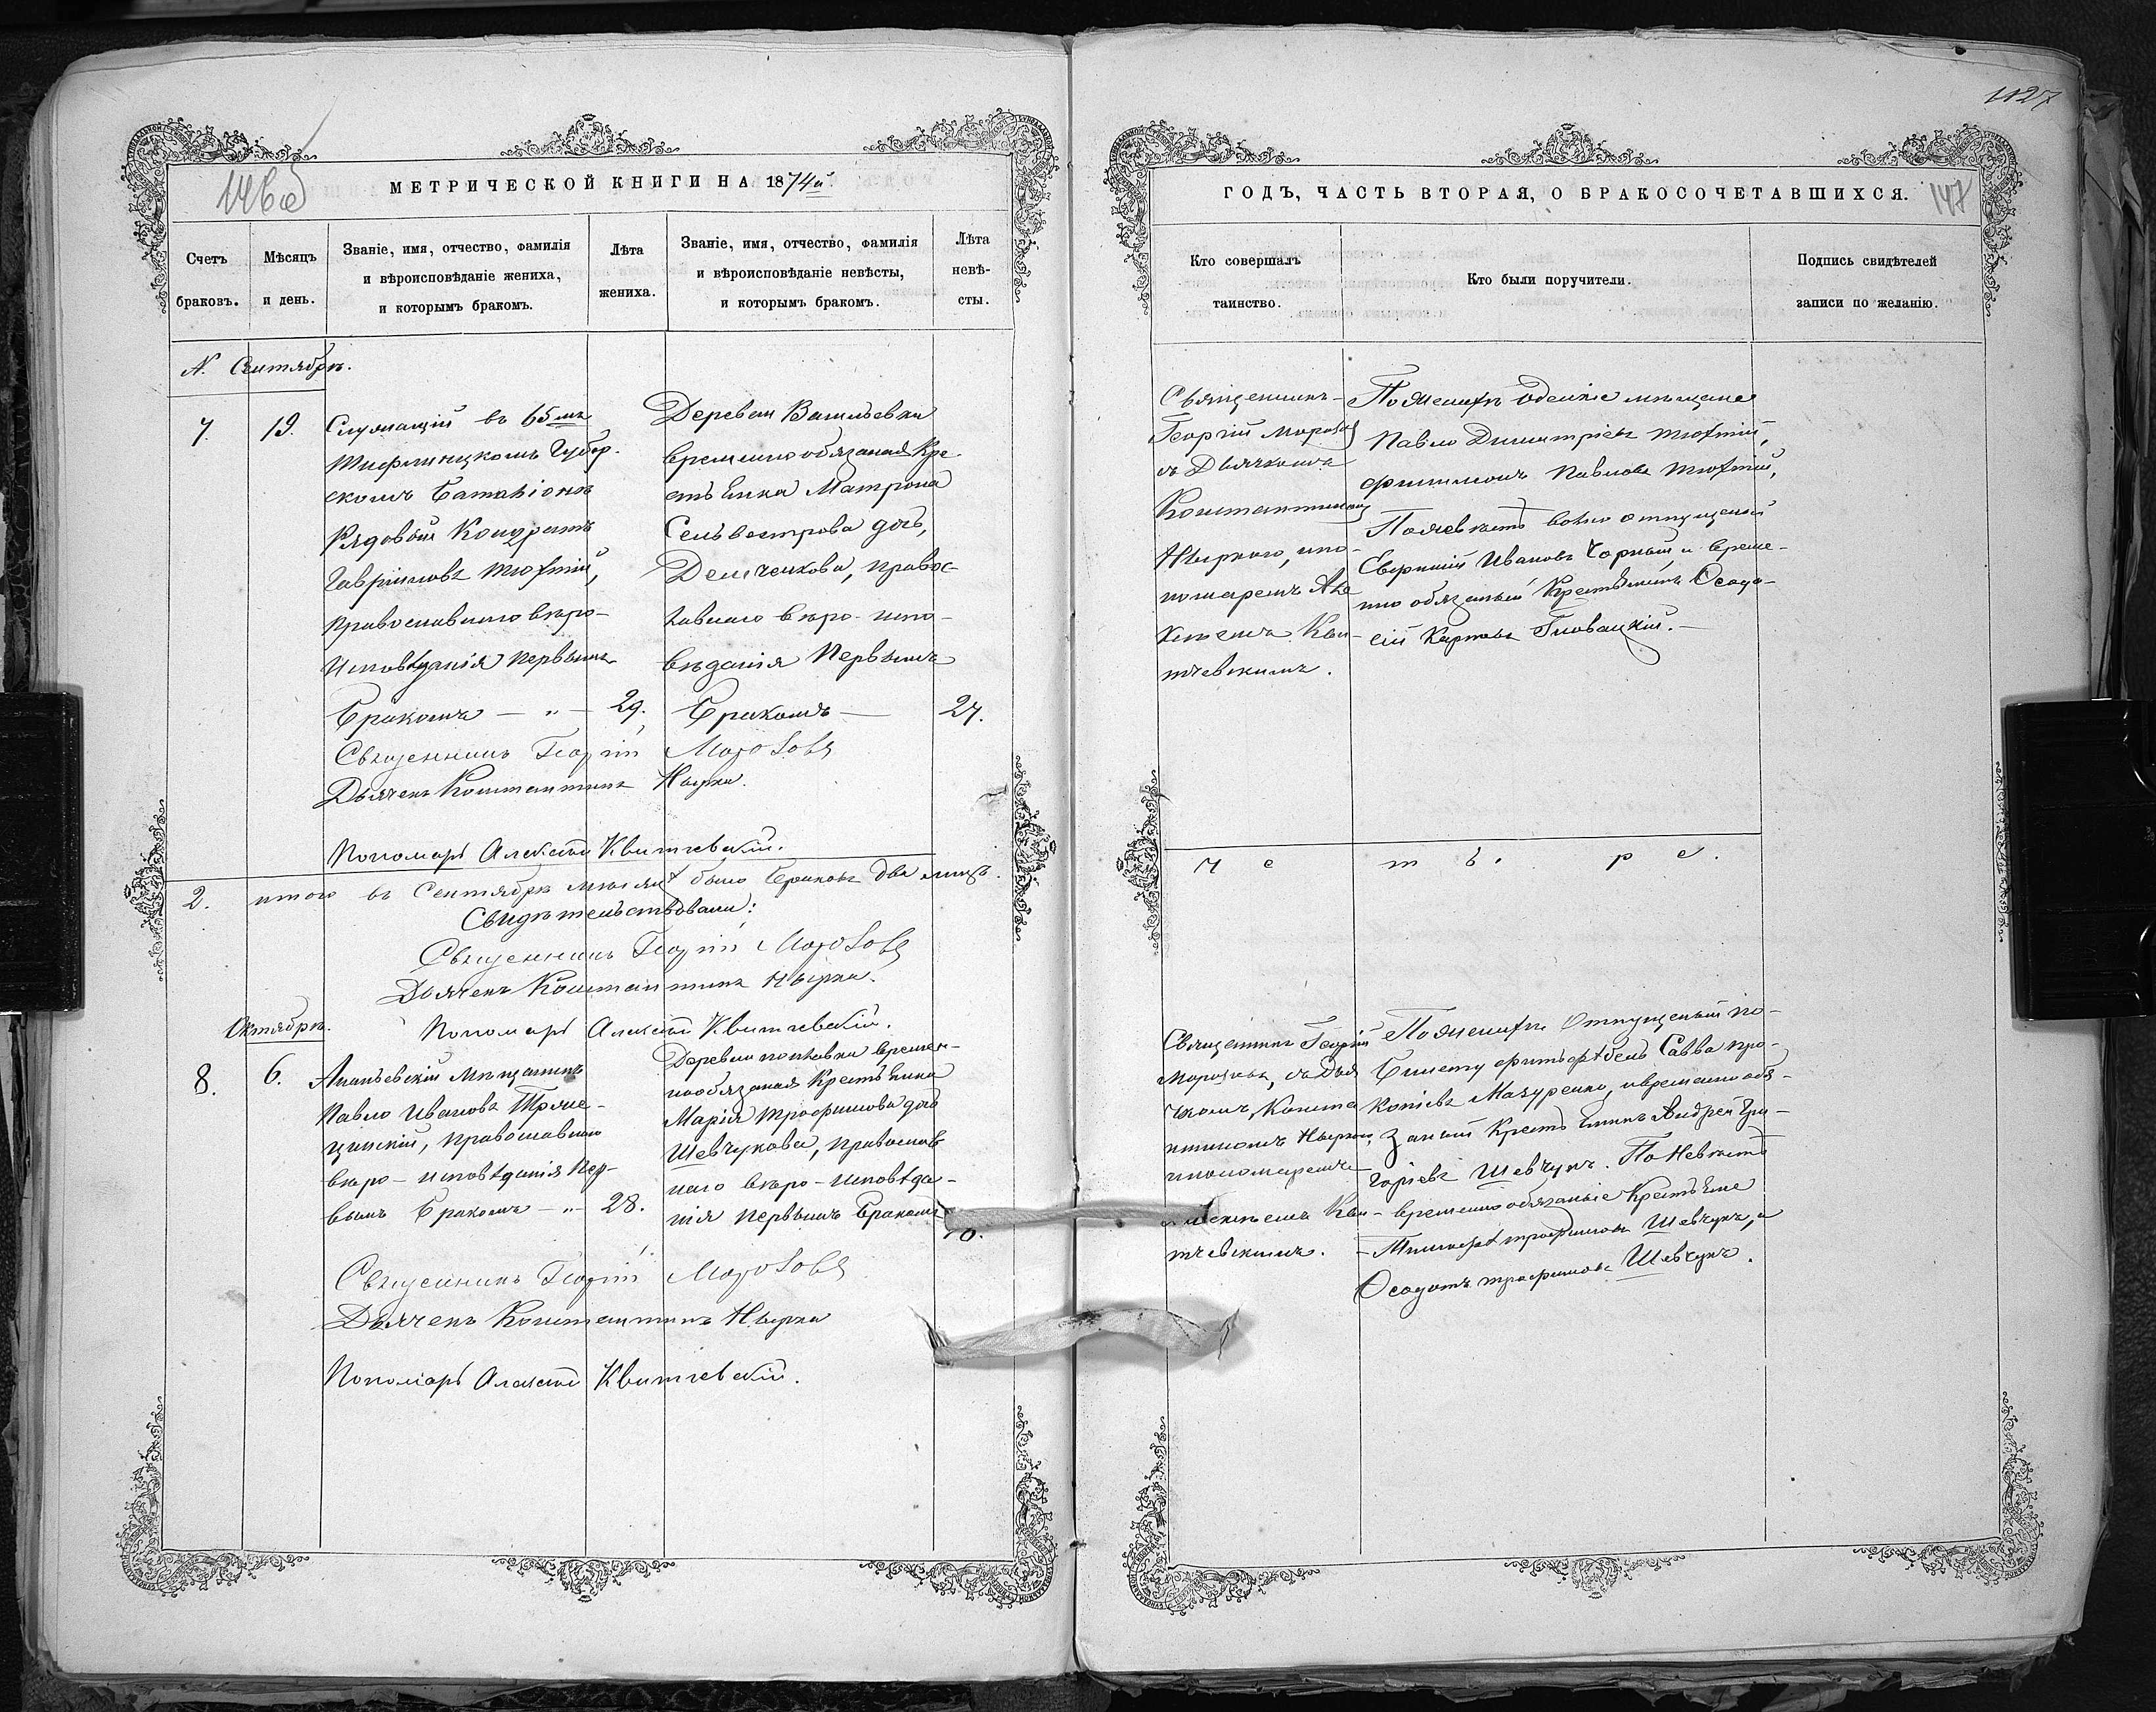 146об
МЕТРИЧЕСКОЙ КНИГИ НА 1874й
Счетъ браковъ.
Мѣсяцъ и день.
Званіе, имя, отчество, фамилія и вѣроисповѣданіе жениха, и которымъ бракомъ.
Лѣта жениха.
Званіе, имя, отчество, фамилія и вѣроисповѣданіе невѣсты, и которымъ бракомъ.
Лѣта невѣ-сты.
N. Сентябрь.
7. 19.
Служащій въ 65мъ
Тифлинскомъ Губер.
скомъ Баталіонѣ
Рядовой Кондратъ
Гавриловъ Тютюй,
Православнаго вѣро-
Исповѣданія первымъ
Бракомъ — „ — 29.
Деревни Васильевки
временно обязаная Кре-
стьянка Матрона
Сельвестрова дочь,
Демченкова, правос-
лавнаго вѣро-испо-
вѣданія Первымъ
Бракомъ — 24.
Священникъ Георгій Морозовъ
Дьячекъ Константинъ Нырка.
Пономарь Алексѣй Квитчевскій.
2. итого въ Сентябрѣ мѣсяцѣ было Браковъ два лицъ.
Свидѣтельствовали:
Священникъ Георгій Морозовъ
Дьячекъ Константинъ Нырка.
Пономарь Алексѣй Квитчевскій.
Октябрь.
8. 6.
Ананьевскій мѣщанинъ
Павло Ивановъ
православнаго
вѣро-исповѣданія Пер-
вымъ Бракомъ — „ — 28.
Деревни времен-
нообязаная Крестьянка
Марія Трофимова дочь
Шевчукова, православ-
наго вѣро-исповѣда-
нія первымъ Бракомъ
Священникъ Георгій Морозовъ
Дьячекъ Константинъ Нырка
Пономарь Алексѣй Квитчевскій.
147
ГОДЪ, ЧАСТЬ ВТОРАЯ, О БРАКОСОЧЕТАВШИХСЯ.
Кто совершалъ таинство.
Кто были поручители.
Подпись свидѣтелей записи по желанію.
Священникъ
Георгій Морозовъ
съ Дьячкомъ
Константиномъ
Ныркою, и по-
номаремъ Але
ксѣемъ Кви-
тчевскимъ.
По Женихѣ Одескіе мѣщане
Павло Димитріевъ Тютюй,
Филимонъ Павловъ Тютюй,
По невѣстѣ вольно отпущеной
Ивановъ Чорный, и време-
нно обязаный Крестьянинъ
Карповъ Гловацкій. —
Ч е т ы. р е.
Священникъ Георгій
Морозовъ, съ Дья
чкомъ, Конста
нтиномъ Ныркою,
и пономаремъ
Алексѣемъ Кви-
тчевскимъ.
По Женихѣ Отпущеный по-
Билету фельдфебель Савва Про-
копіевъ Мазуренко, и временно обя-
заный Крестьянинъ Андрей Гри-
горіевъ Шевчукъ. По Невѣстѣ
временно обязаные Крестьяне
Тимофей Трофимовъ Шевчукъ, и
Трофимовъ Шевчукъ.